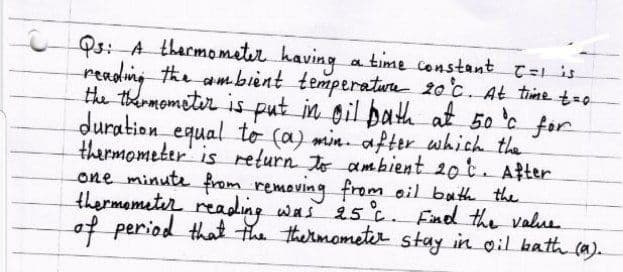 Q3: A thermometer having a time constant τ=1 is
reading the ambient temperature 20°C. At time t=0
the thermometer is put in oil bath at 50°C for
duration equal to (a) min. after which the
thermometer is return to ambient 20°C. After
one minute from removing from oil bath the
thermometer reading was 25°C. Find the value
of period that the thermometer stay in oil bath (a).